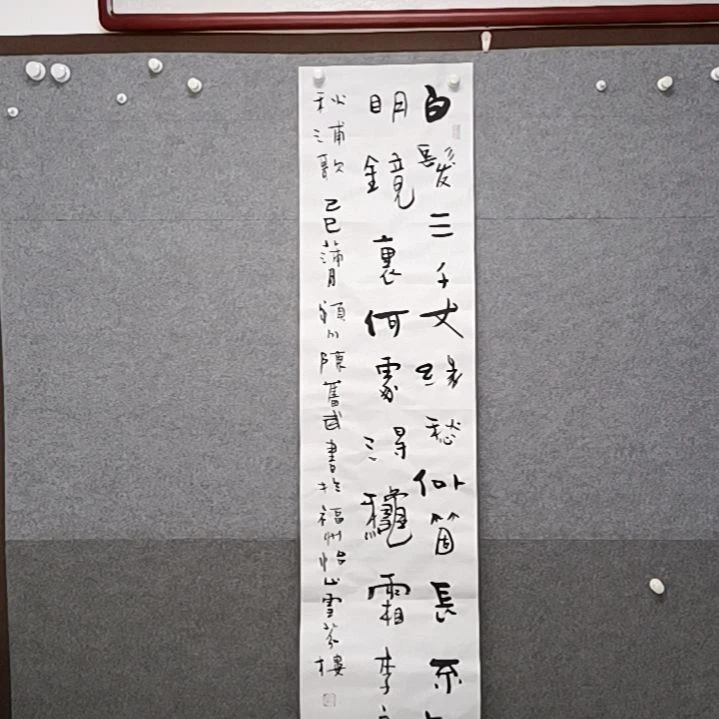 白髮三千丈緣愁似箇長不
明鏡裏何處得龝霜李
秋浦歌 乙巳蒲月 潁川陳奮武書於福州怡山雪芬樓